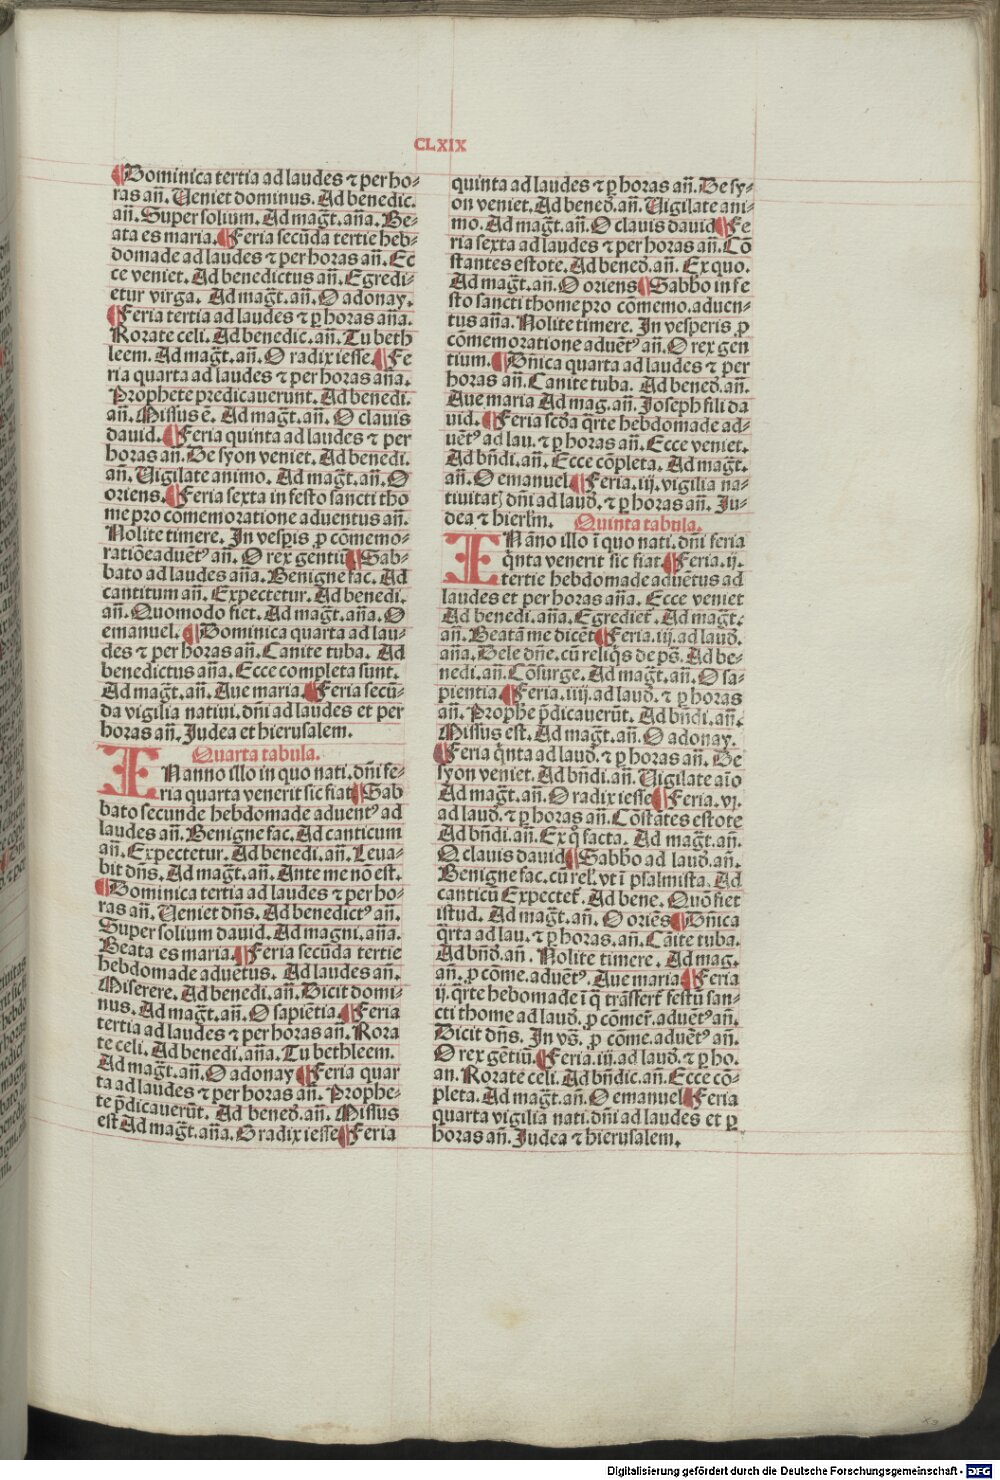 CLXIX
¶Dominica tertia ad laudes ⁊ per ho⸗
ras añ. Ueniet dominus. Ad benedic.
añ. Super solium. Ad mag̃t. aña. Be⸗
ata es maria. ¶Feria secũda tertie heb⸗
domade ad laudes ⁊ per horas añ. Ec
ce veniet. Ad benedictus añ. Egredi⸗
etur virga. Ad mag̃t. añ. O adonay.
¶Feria tertia ad laudes ⁊ ꝑ horas aña.
Rorate celi. Ad benedic. añ. Tu beth
leem. Ad mag̃t. añ. O radix iesse. ¶Fe
ria quarta ad laudes ⁊ per horas aña.
Prophete predicauerunt. Ad benedi.
añ. Missus ē. Ad mag̃t. añ. O clauis
dauid. ¶Feria quinta ad laudes ⁊ per
horas añ. De syon veniet. Ad benedi.
añ. Uigilate animo. Ad mag̃t. añ. O
oriens. ¶Feria sexta in festo sancti tho
me pro comemoratione aduentus añ.
Nolite timere. In vesꝑis ꝓ cōmemo⸗
ratiōe aduētꝰ añ. O rex gentiũ ¶Sab⸗
bato ad laudes aña. Benigne fac. Ad
cantitum añ. Expectetur. Ad benedi.
añ. Quomodo fiet. Ad mag̃t. aña. O
emanuel. ¶Dominica quarta ad lau⸗
des ⁊ per horas añ. Canite tuba. Ad
benedictus aña. Ecce completa sunt.
Ad mag̃t. añ. Aue maria. ¶Feria secũ⸗
da vigilia natiui. dñi ad laudes et per
horas añ. Judea et hierusalem.
Quarta tabula.
IN anno illo in quo nati. dñi fe⸗
ria quarta venerit sic fiat ¶Sab
bato secunde hebdomade aduentꝰ ad
laudes añ. Benigne fac. Ad canticum
añ. Expectetur. Ad benedi. añ. Leua⸗
bit dñs. Ad mag̃t. añ. Ante me nō est.
¶Dominica tertia ad laudes ⁊ per ho⸗
ras añ. Ueniet dñs. Ad benedictꝰ añ.
Super solium dauid. Ad magni. aña.
Beata es maria. ¶Feria secũda tertie
hebdomade aduētus. Ad laudes añ.
Miserere. Ad benedi. añ. Dicit domi⸗
nus. Ad mag̃t. añ. O sapiētia. ¶Feria
tertia ad laudes ⁊ per horas añ. Rora
te celi. Ad benedi. aña. Tu bethleem.
Ad mag̃t. añ. O adonay ¶Feria quar
ta ad laudes ⁊ per horas añ. Prophe⸗
te p̄dicauerũt. Ad bened̄. añ. Missus
est Ad mag̃t. aña. O radix iesse ¶Feria
quinta ad laudes ⁊ ꝑ horas añ. De sy⸗
on veniet. Ad bened̄. añ. Uigilate ani⸗
mo. Ad mag̃t. an. O clauis dauid ¶Fe
ria sexta ad laudes ⁊ per horas añ. Cō
stantes estote. Ad bened̄. añ. Ex quo.
Ad mag̃t. an. O oriens ¶Sabb̄o in fe
sto sancti thome pro cōmemo. aduen⸗
tus aña. Nolite timere. In vesperis ꝓ
cōmemoratione aduētꝰ añ. O rex gen
tium. ¶Dñica quarta ad laudes ⁊ per
horas añ. Canite tuba. Ad bened̄. añ.
Aue maria Ad mag. an. Joseph fili da
uid. ¶Feria scd̄a q̄rte hebdomade ad⸗
uētꝰ ad lau. ⁊ ꝑ horas añ. Ecce veniet.
Ad bñdi. añ. Ecce cōpleta. Ad mag̃t.
añ. O emanuel ¶Feria. iij. vigilia na⸗
tiuitatꝭ dñi ad laud̄. ⁊ ꝑ horas añ. Ju⸗
dea ⁊ hierlm̄. Quinta tabula.
IN āno illo ī quo nati. dñi feria
q̄nta venerit sic fiat. ¶Feria. ij.
tertie hebdomade aduētus ad
laudes et per horas aña. Ecce veniet
Ad benedi. aña. Egrediet᷑. Ad mag̃t.
añ. Beatā me dicēt ¶Feria. iij. ad laud̄.
aña. Dele dñe. cũ reliq̄s de ps̄. Ad be⸗
nedi. añ. Cōsurge. Ad mag̃t. añ. O sa⸗
pientia. ¶Feria. iiij. ad laud̄. ⁊ ꝑ horas
añ. Prophe p̄dicauerũt. Ad bñdi. añ.
Missus est. Ad mag̃t. añ. O adonay.
¶Feria q̄nta ad laud̄. ⁊ ꝑ horas añ. De
syon veniet. Ad bñdi. añ. Uigilate aīo
Ad mag̃t. añ. O radix iesse ¶Feria. vj.
ad laud̄. ⁊ ꝑ horas añ. Cōstātes estote
Ad bñdi. añ. Ex q̊ facta. Ad mag̃t. añ.
O clauis dauid ¶Sabb̄o ad laud̄. añ.
Benigne fac. cũ rel̄. vt ī psalmista. Ad
canticũ Expectet᷑. Ad bene. Quō fiet
istud. Ad mag̃t. añ. O oriēs ¶Dñica
q̄rta ad lau. ⁊ ꝑ horas. añ. Cāite tuba.
Ad bñd̄. añ. Nolite timere. Ad mag.
añ. ꝓ cōme. aduētꝰ. Aue maria ¶Feria
ij. q̄rte hebomade ī q̄ trāsfert᷑ festũ san⸗
cti thome ad laud̄. ꝓ cōmer̄. aduētꝰ añ.
Dicit dñs. In vs̄. ꝓ cōme. aduētꝰ añ.
O rex gētiũ. ¶Feria. iij. ad laud̄. ⁊ ꝑ ho.
an. Rorate celi. Ad bñdic. an. Ecce cō⸗
pleta. Ad mag̃t. añ. O emanuel ¶Feria
quarta vigilia nati. dñi ad laudes et ꝑ
horas añ. Judea ⁊ hierusalem.
Digitalisierung gefördert durch die Deutsche Forschungsgemeinschaft - DFG